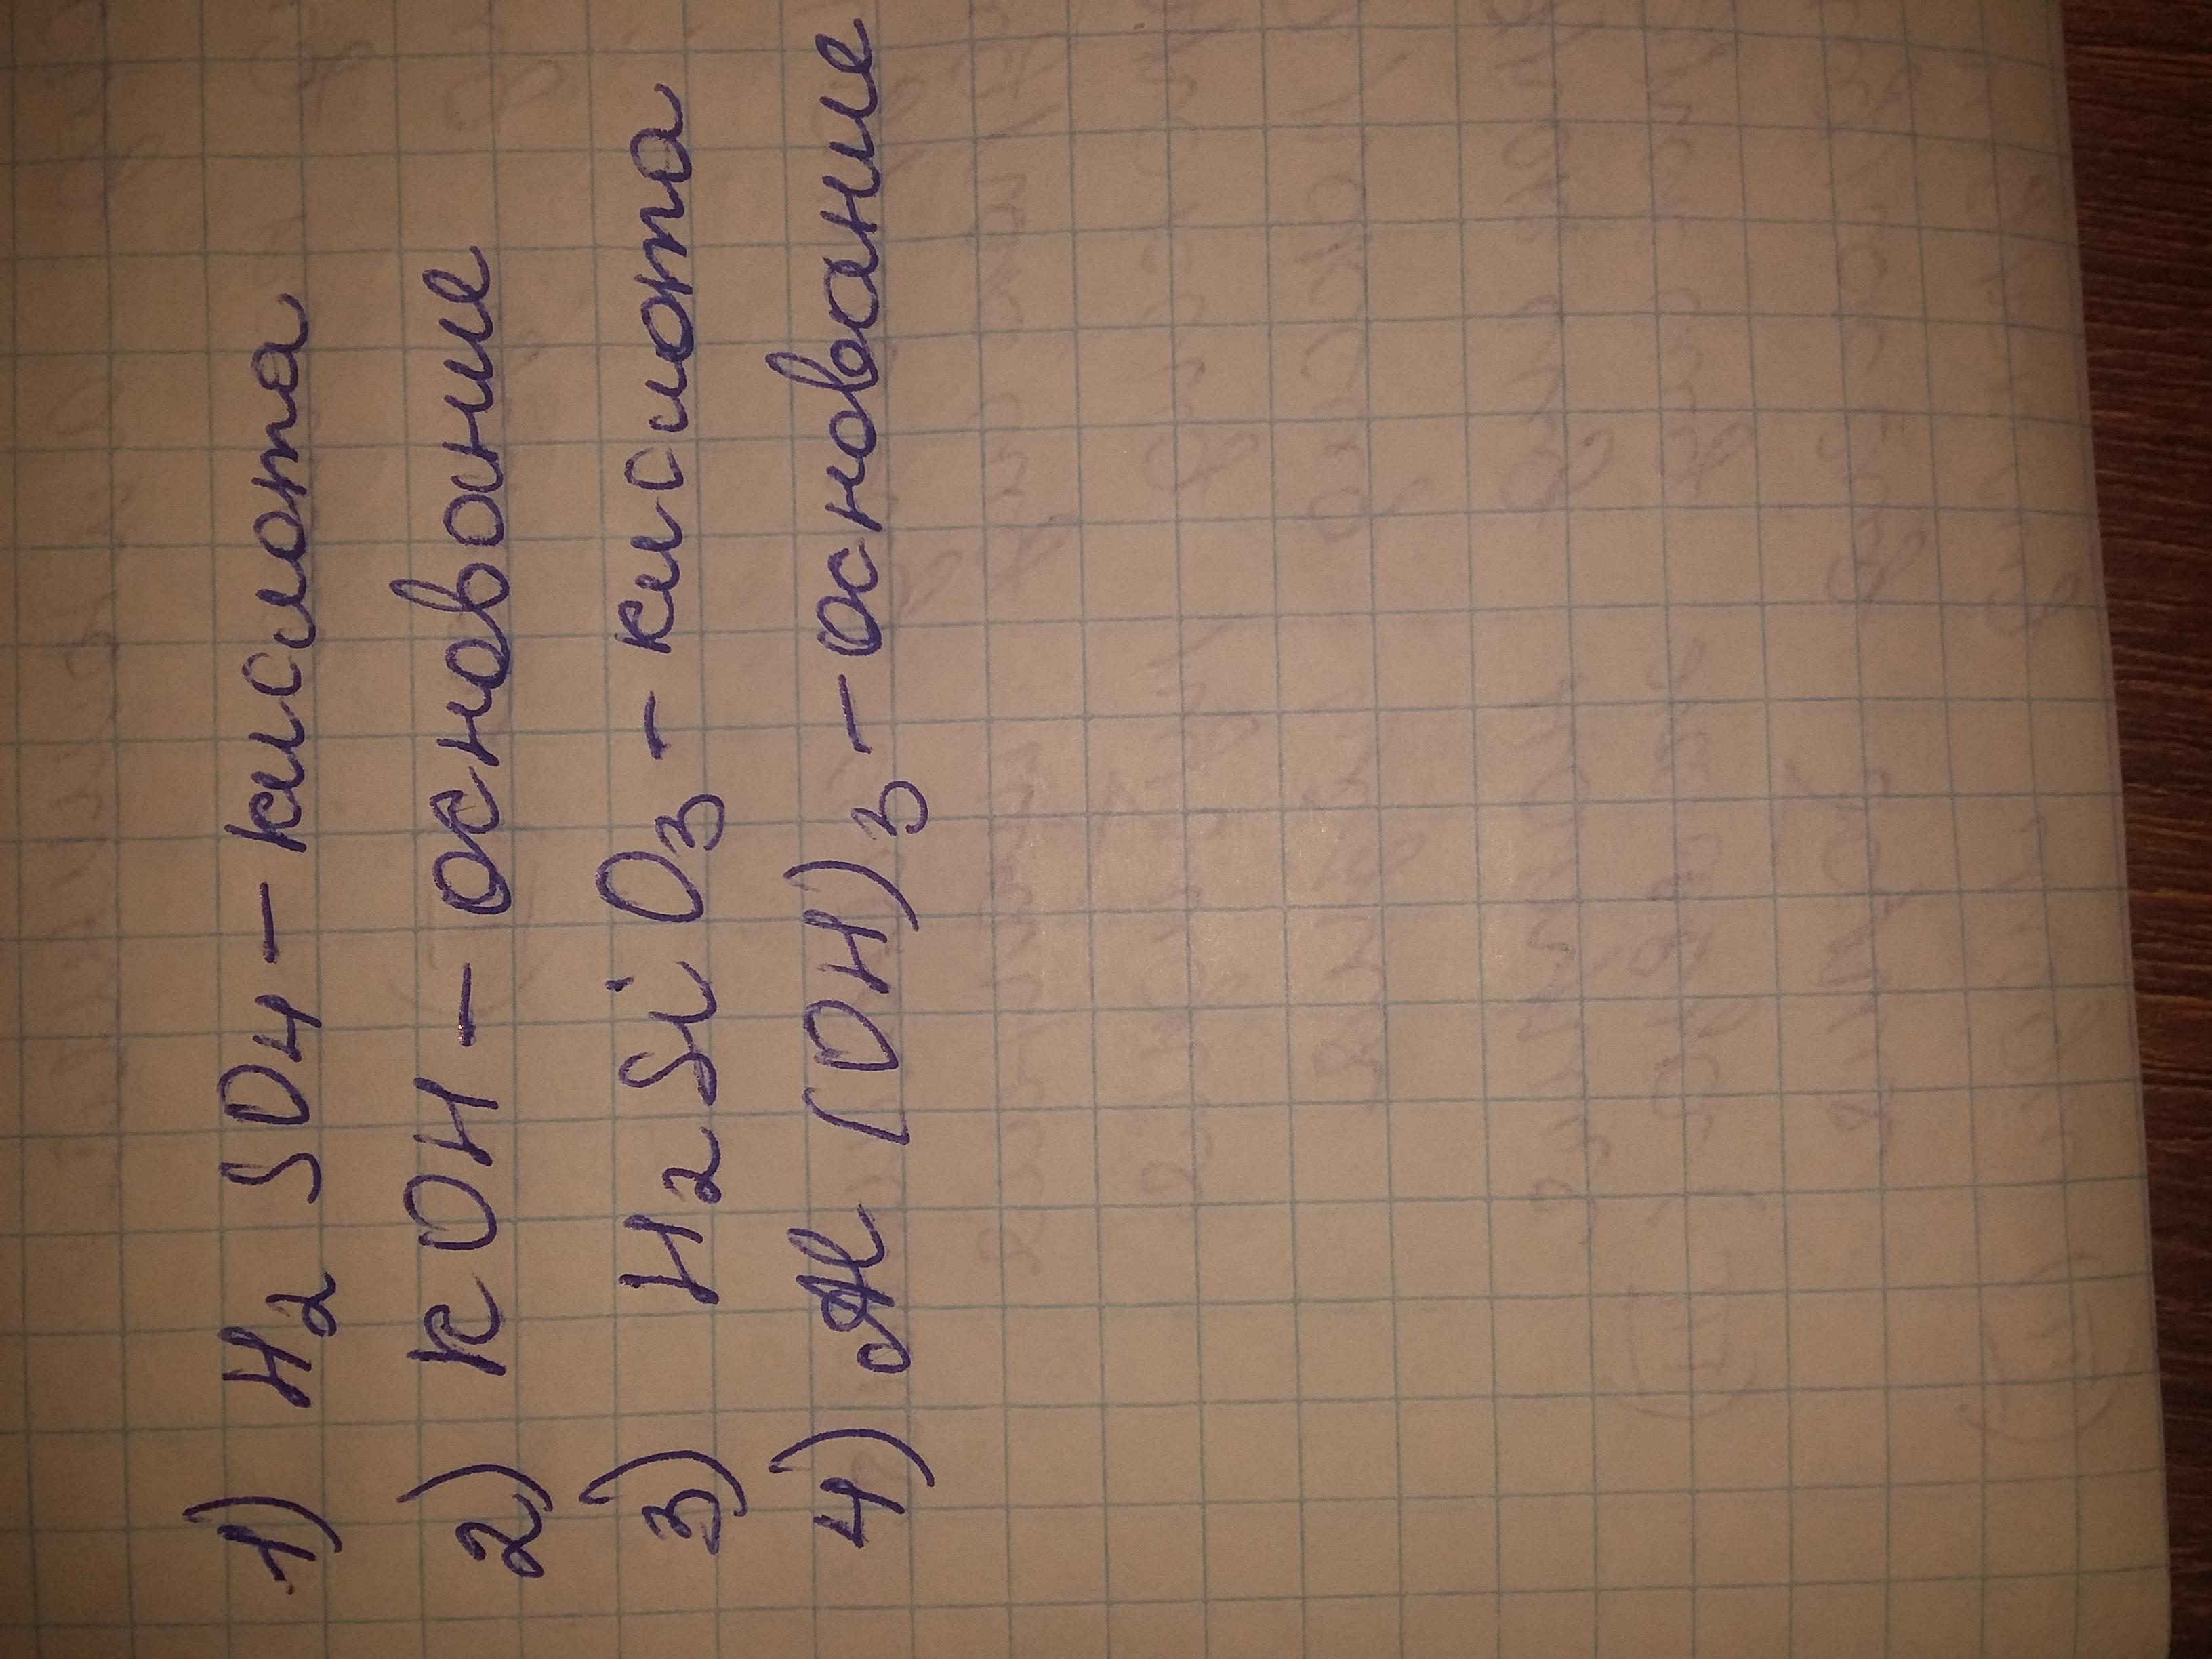 1) H₂SO₄ - кислота
2) KOH - основание
3) H₂SiO₃ - кислота
4) Al(OH)₃ - основание